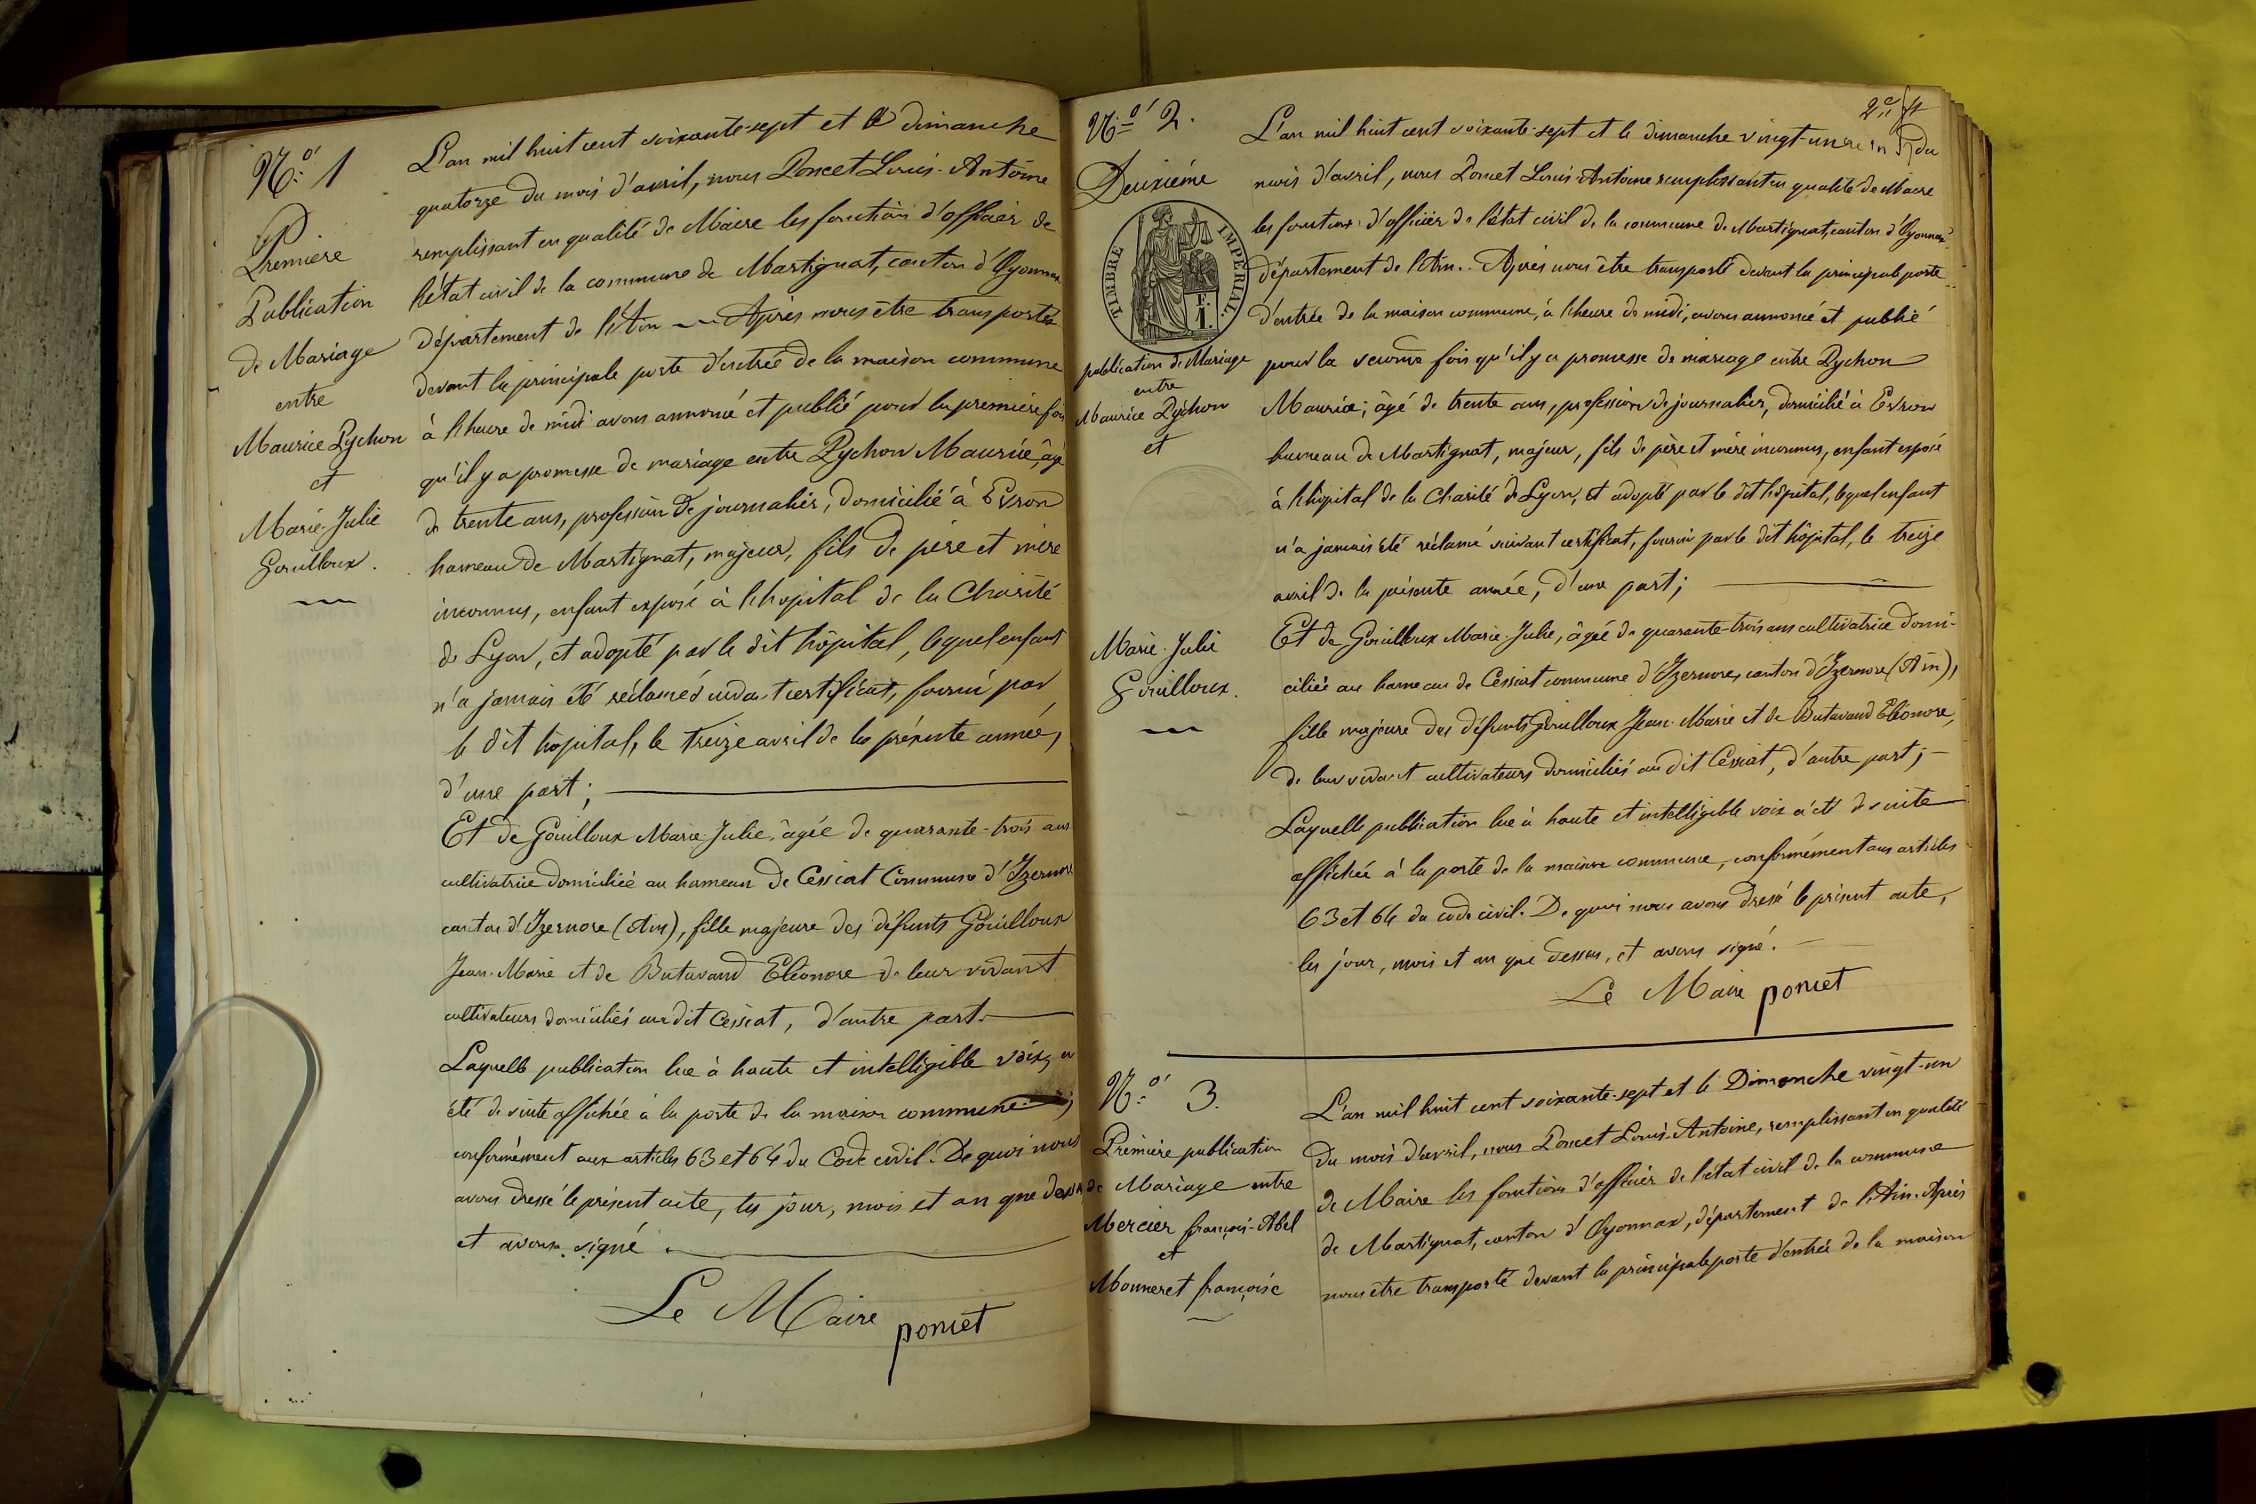 N.o 1
Première
Publication
de Mariage
entre
Maurice Pychon
et
Marie-Julie
Gouilloux.
L'an mil huit cent soixante-sept et le dimanche
quatorze du mois d'avril, nous Poncet Louis-Antoine
remplissant en qualité de Maire les fonctions d'officier de
l'état civil de la commune de Martignat, canton d'Oyonnax
département de l'Ain — Après nous être transporté
devant la principale porte d'entrée de la maison commune
à l'heure de midi avons annoncé et publié pour la première fois
qu'il y a promesse de mariage entre Pychon Maurice, âgé
de trente ans, profession de journalier, domicilié à Evron
hameau de Martignat, majeur, fils de père et mère
inconnus, enfant exposé à l'hôpital de la Charité
de Lyon, et adopté par le dit hôpital, lequel enfant
n'a jamais été réclamé suivant certificat, fourni par
le dit hôpital, le treize avril de la présente année,
d'une part;
Et de Gouilloux Marie-Julie, âgée de quarante-trois ans
cultivatrice domiciliée au hameau de Cessiat Commune d'Izernore
canton d'Izernore (Ain), fille majeure des défunts Gouilloux
Jean-Marie et de Butavand Eléonore de leur vivant
cultivateurs domiciliés au dit Cessiat, d'autre part.
Laquelle publication lue à haute et intelligible voix, a
été de suite affichée à la porte de la maison commune;
conformément aux articles 63 et 64 du Code civil. De quoi nous
avons dressé le présent acte, les jour, mois et an que dessus
et avons signé.
Le Maire poncet
2e
N.o 2.
Deuxième
TIMBRE IMPÉRIAL
publication de Mariage
entre
Maurice Pychon
et
Marie-Julie
Gouilloux.
L'an mil huit cent soixante-sept et le dimanche vingt-un du
mois d'avril, nous Poncet Louis-Antoine remplissant en qualité de Maire
les fonctions d'officier de l'état civil de la commune de Martignat, canton d'Oyonnax
département de l'Ain. Après nous être transporté devant la principale porte
d'entrée de la maison commune, à l'heure de midi, avons annoncé et publié
pour la seconde fois qu'il y a promesse de mariage entre Pychon
Maurice; âgé de trente ans, profession de journalier, domicilié à Evron
hameau de Martignat, majeur, fils de père et mère inconnus, enfant exposé
à l'hôpital de la Charité de Lyon, et adopté par le dit hôpital, lequel enfant
n'a jamais été réclamé suivant certificat, fourni par le dit hôpital, le treize
avril de la présente année, d'une part;
Et de Gouilloux Marie-Julie, âgée de quarante-trois ans cultivatrice domi-
ciliée au hameau de Cessiat commune d'Izernore, canton d'Izernore (Ain),
fille majeure des défunts Gouilloux Jean-Marie et de Butavand Eléonore,
de leur vivant cultivateurs domiciliés au dit Cessiat, d'autre part;
Laquelle publication lue à haute et intelligible voix a été de suite
affichée à la porte de la maison commune, conformément aux articles
63 et 64 du code civil. De quoi nous avons dressé le présent acte,
les jour, mois et an que dessus, et avons signé.
Le Maire poncet
N.o 3.
Première publication
de Mariage entre
Mercier françois-Abel
et
Monneret françoise
L'an mil huit cent soixante-sept et le Dimanche vingt-un
du mois d'avril, nous Poncet Louis-Antoine, remplissant en qualité
de Maire les fonctions d'officier de l'état civil de la commune
de Martignat, canton d'Oyonnax, département de l'Ain. Après
nous être transporté devant la principale porte d'entrée de la maison